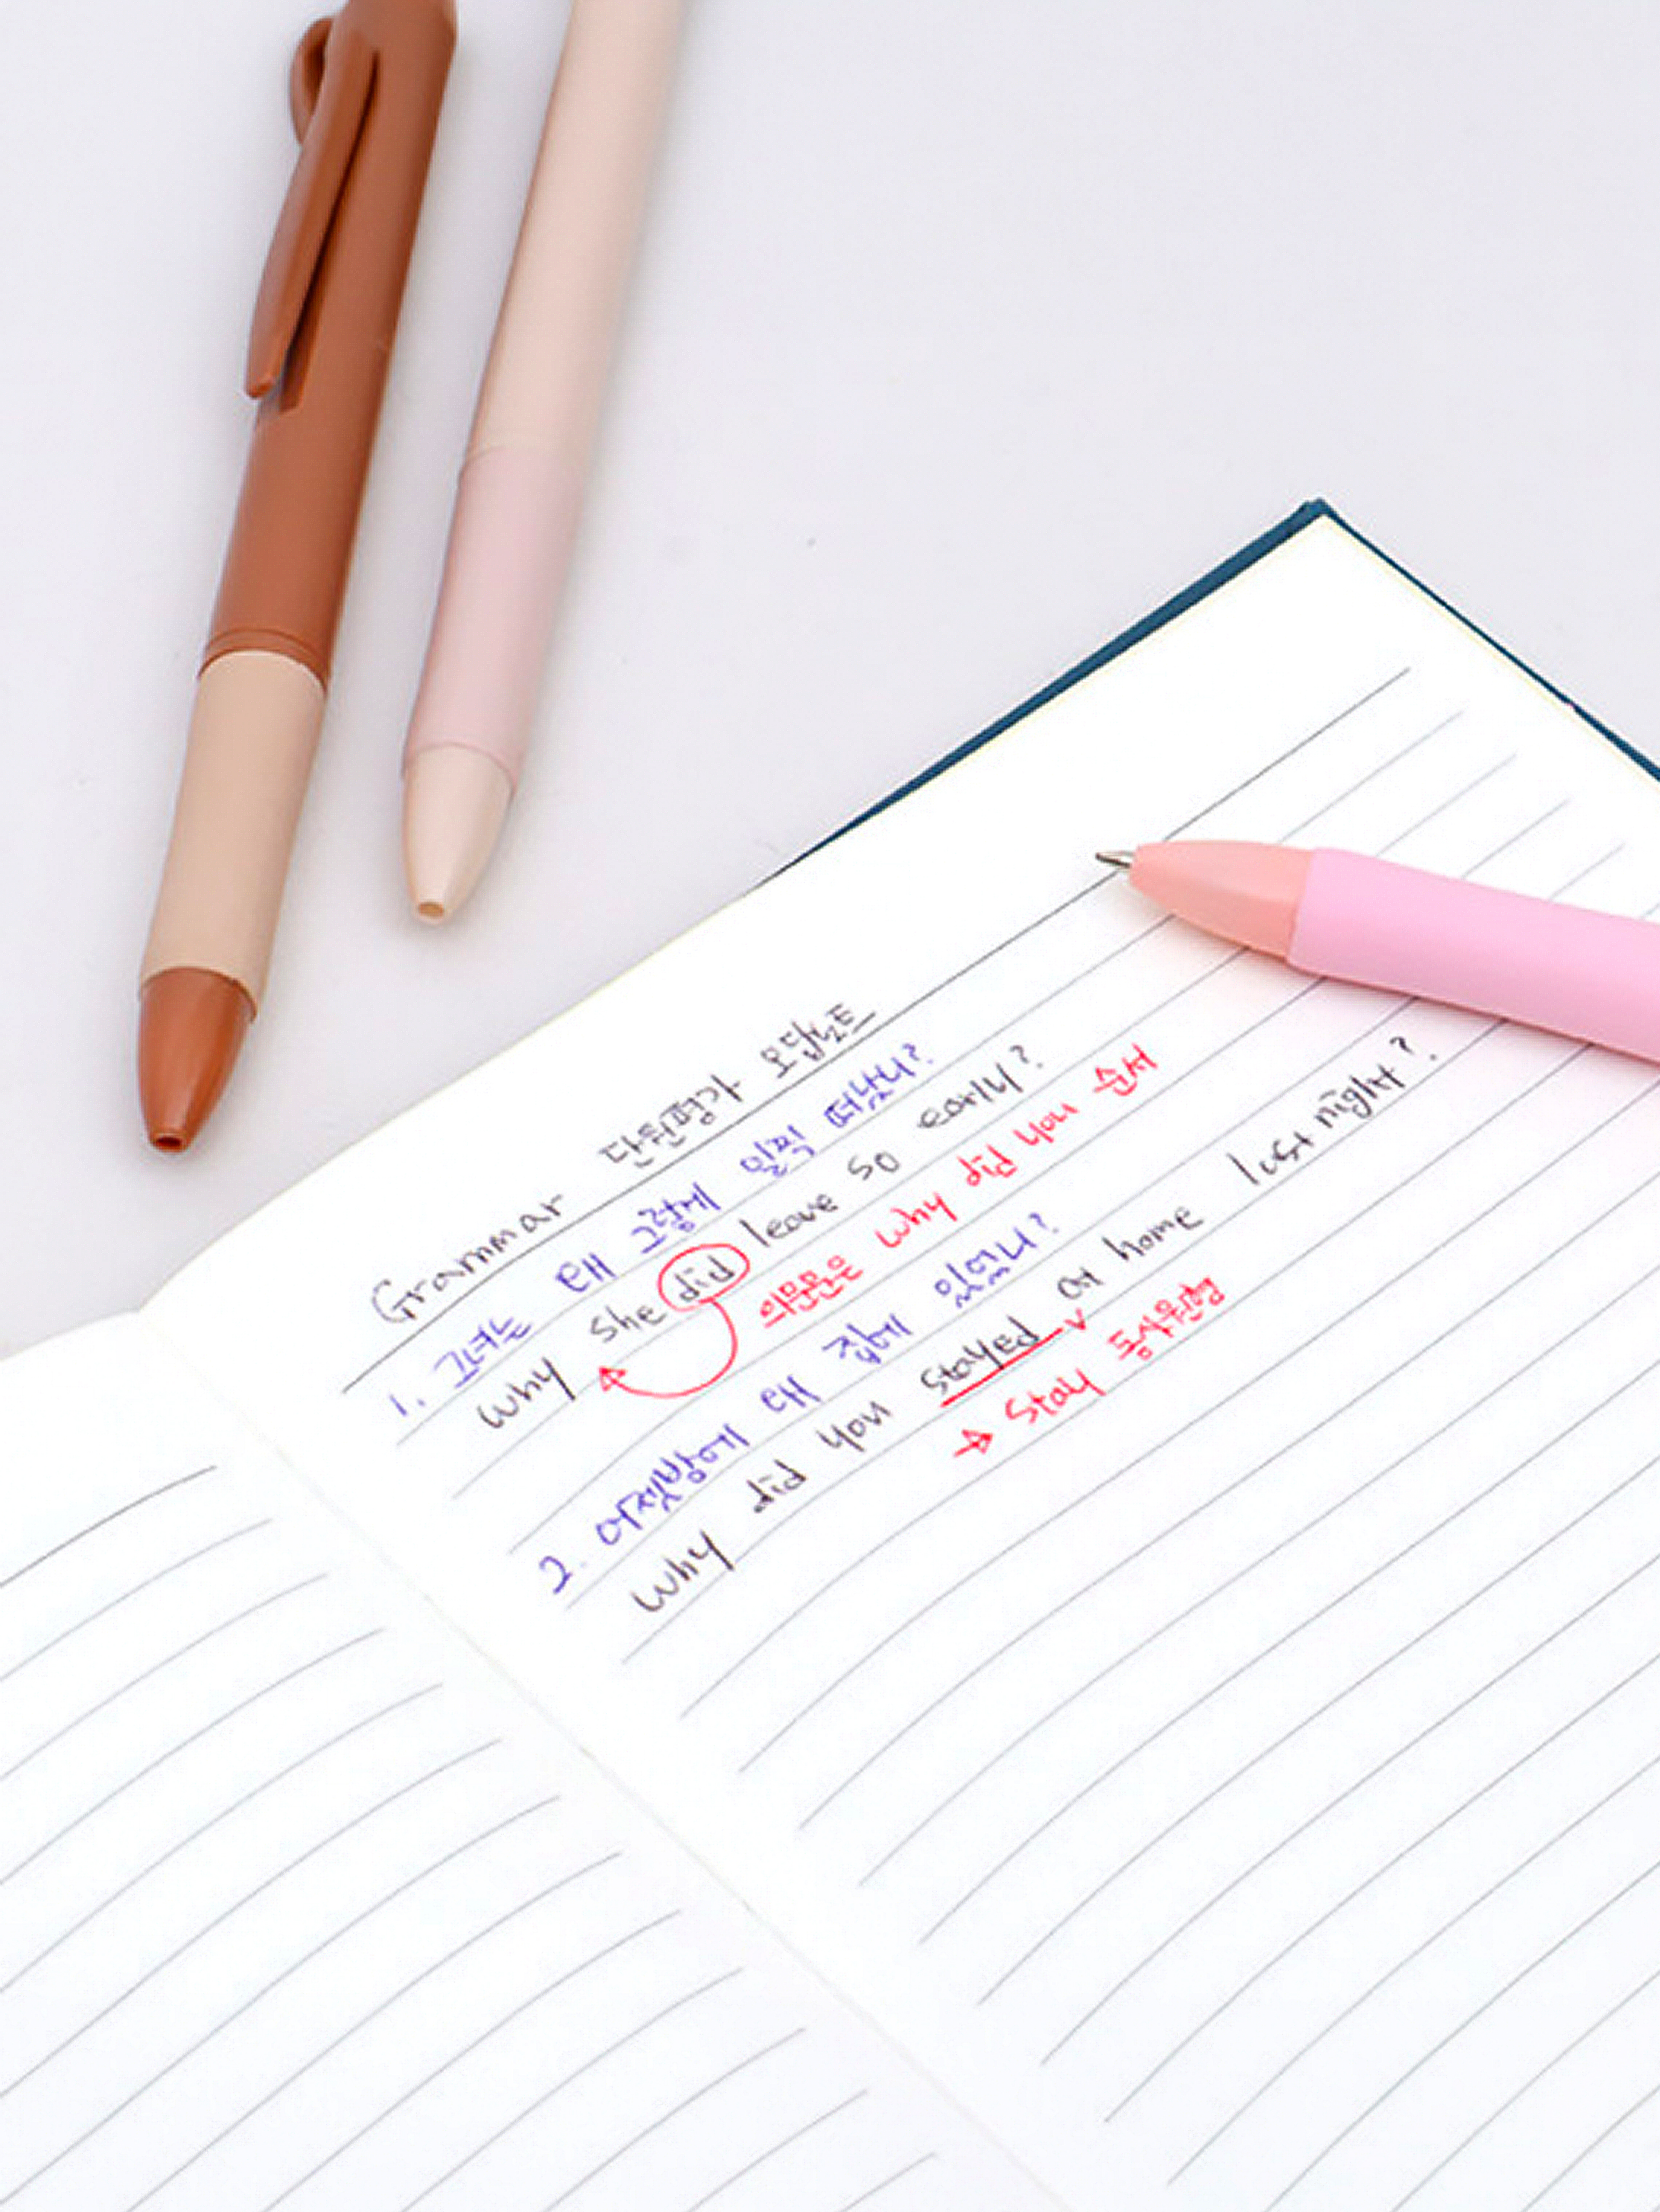 Grammar 단원평가 오답노트
1. 그녀는 왜 그렇게 일찍 떠났니?
why she did leave so early?
의문문은 why did you 순서
2. 어젯밤에 왜 집에 있었니?
why did you stayed at home last night?
→ stay 동사원형